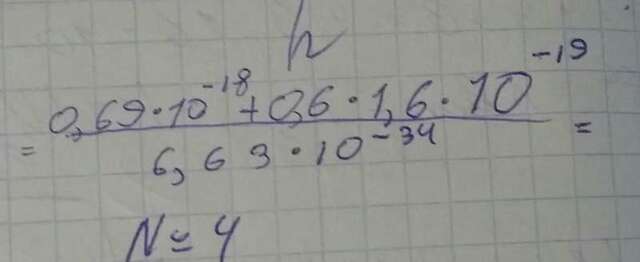 h
= 0,69·10⁻¹⁸+0,6·1,6·10⁻¹⁹ =
6,63·10⁻³⁴
N ≃ 4